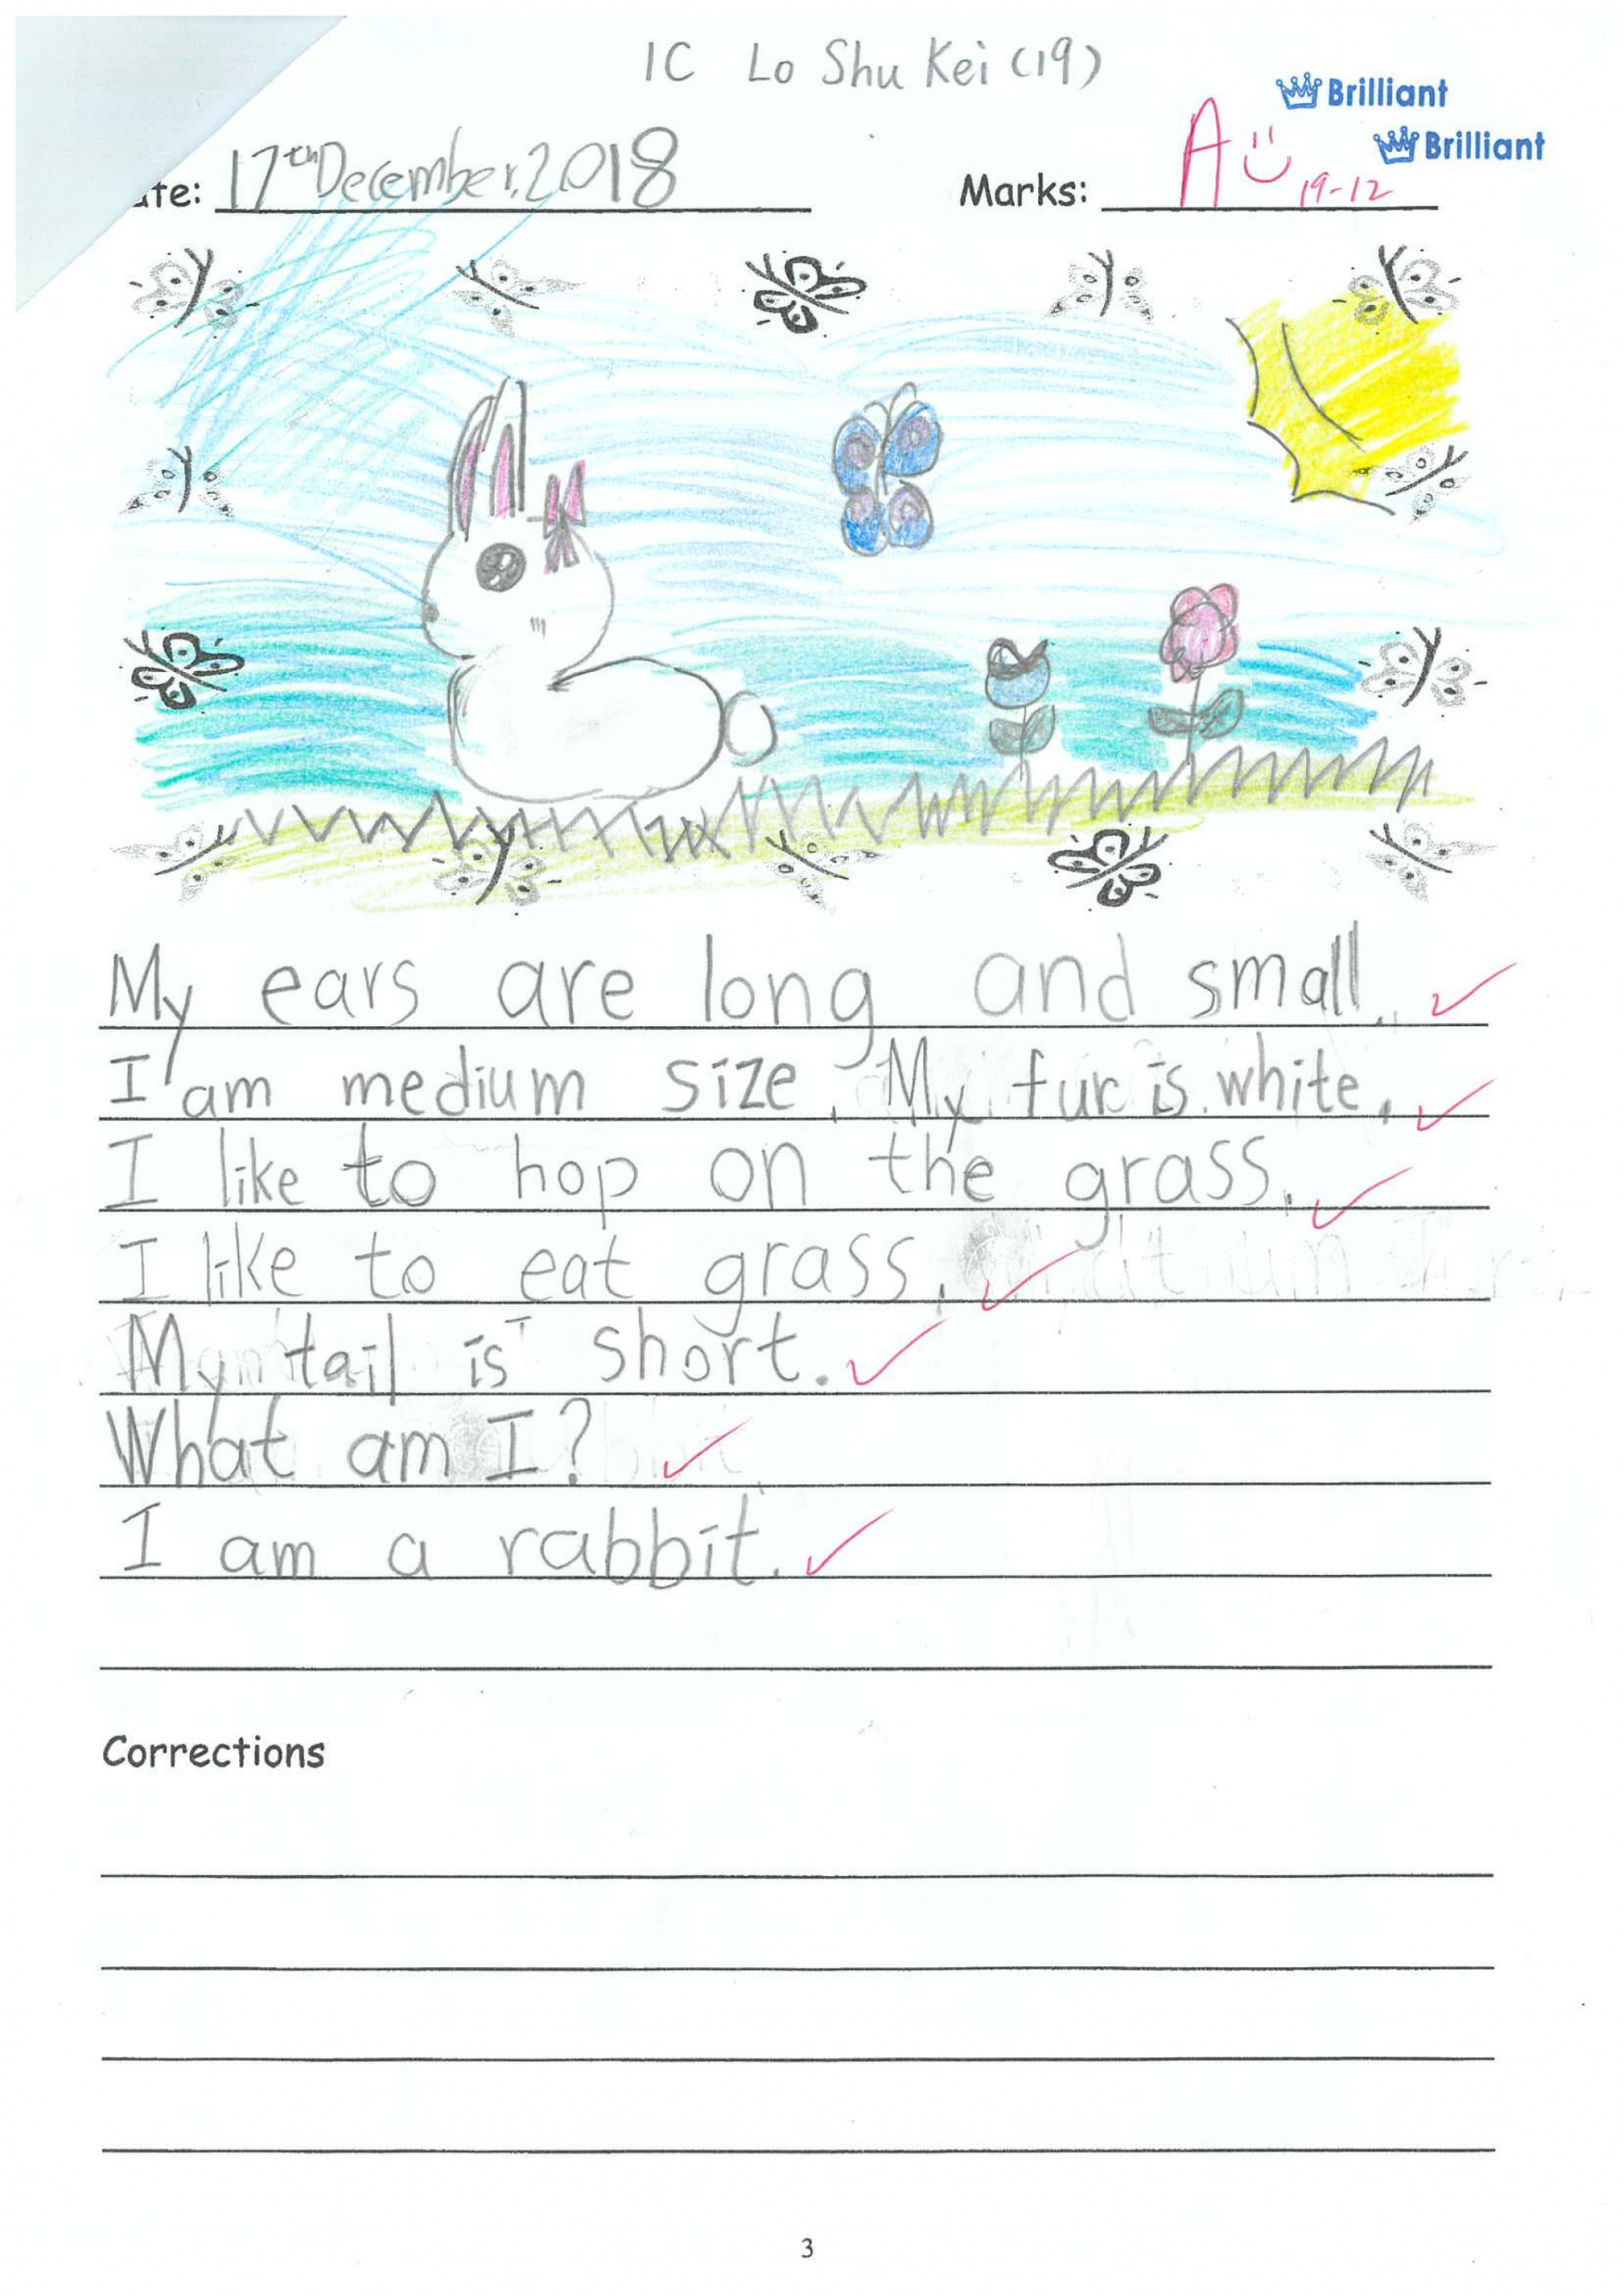 1C Lo Shu Kei (19)
Brilliant
Brilliant
ate: 17th December, 2018 Marks: A 19-12
My ears are long and small.
I am medium size. My fur is white.
I like to hop on the grass.
I like to eat grass.
My tail is short.
What am I?
I am a rabbit.
Corrections
3